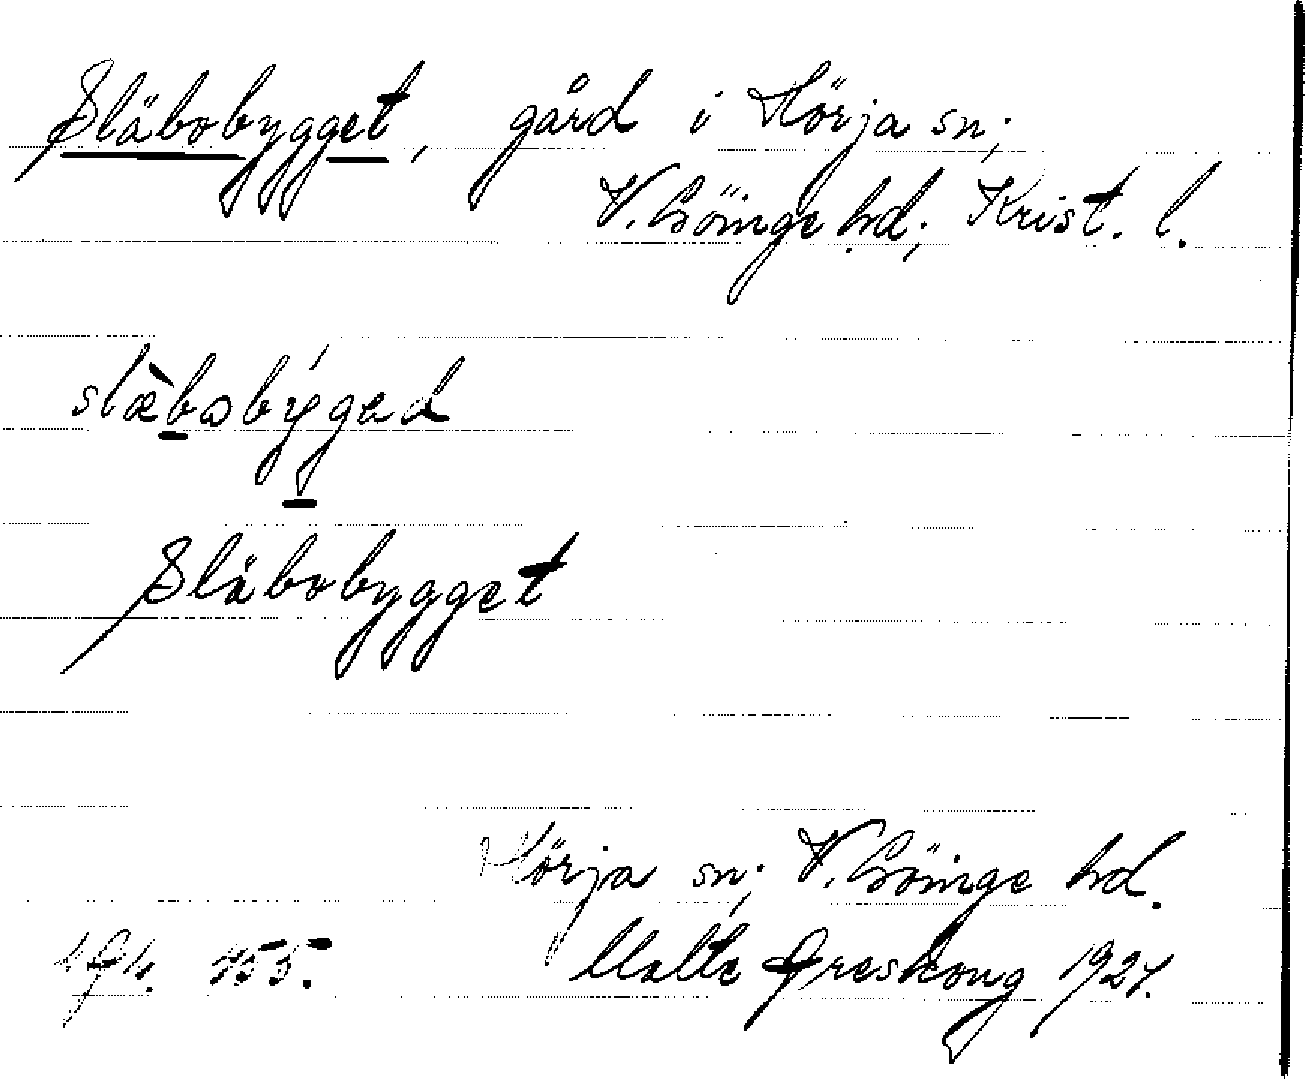 Släbobygget, gård i Hörja sn;
V. Göinge hd; Krist. l.
slæ̀bobýgad
Släbobygget
Hörja sn; V. Göinge hd.
Malte Areskoug 1927.